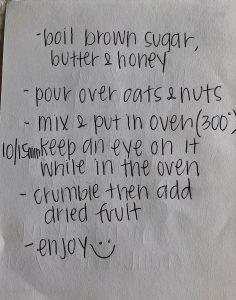 -boil brown sugar,
butter & honey
- pour over oats & nuts
- mix & put in oven (300°)
10/15min keep an eye on it
while in the oven
- crumble then add
dried fruit
- enjoy ☺